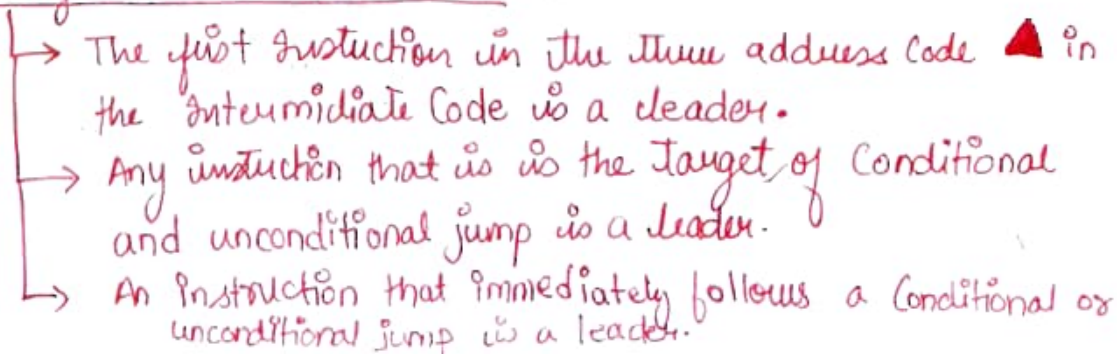 The first Instuction in the three address Code in
the Intermidiate Code is a leader.
Any instuction that is is the Target of Conditional
and unconditional jump is a leader.
An Instruction that immediately follows a Conditional or
unconditional jump is a leader.